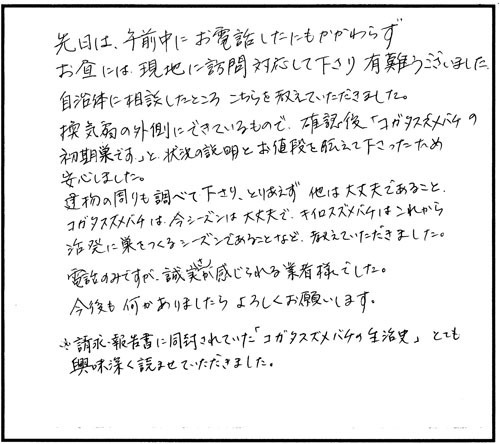 先日は、午前中にお電話したにもかかわらず
お昼には現地に訪問対応して下さり有難うございました。
自治体に相談したところこちらを教えていただきました。
換気扇の外側にできているもので、確認後「コガタスズメバチの
初期巣です。」と、状況の説明とお値段を伝えて下さったため
安心しました。
建物の周りも調べて下さり、とりあえず他は大丈夫であること、
コガタスズメバチは今シーズンは大丈夫で、キイロスズメバチはこれから
活発に巣をつくるシーズンであることなど、教えていただきました。
電話のみですが、誠実さが感じられる業者様でした。
今後も何かありましたらよろしくお願いします。
※請求・報告書に同封されていた「コガタスズメバチの生活史」とても
興味深く読ませていただきました。